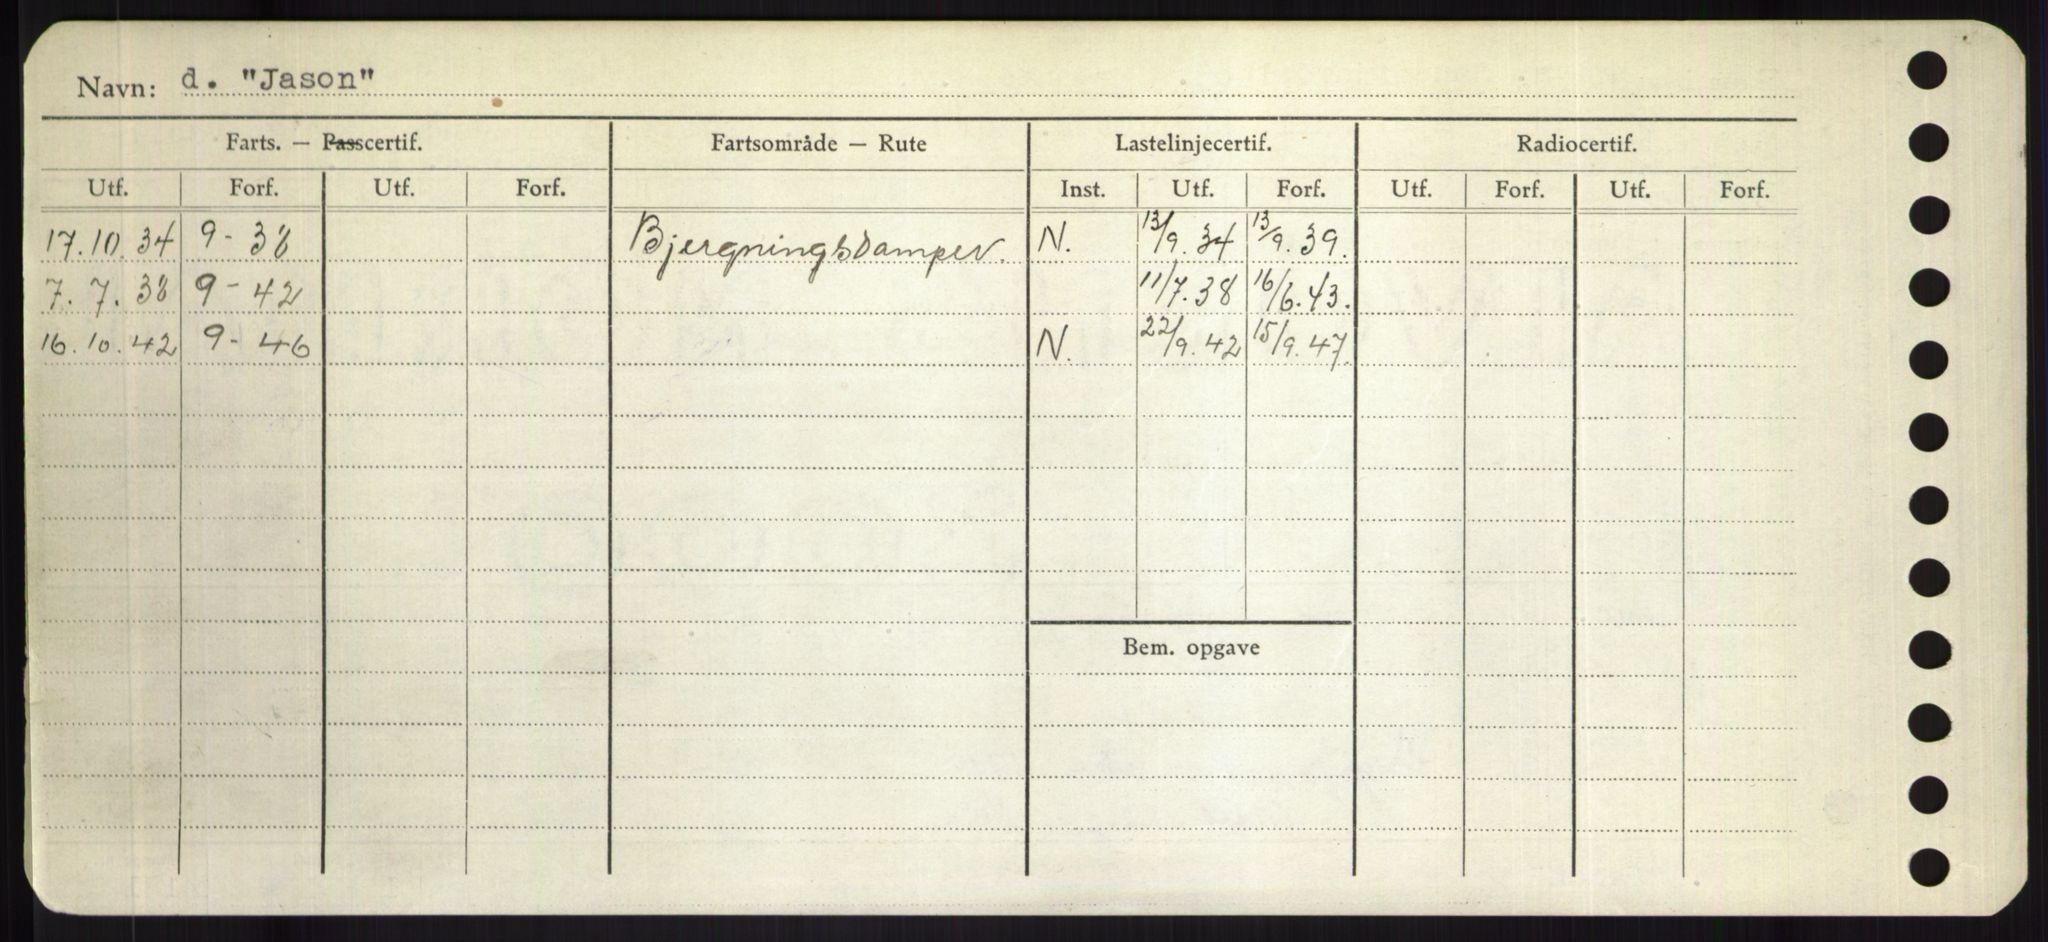 Navn: d. "Jason"
Farts. — Passcertif. Fartsområde — Rute Lastelinjecertif. Radiocertif.
Utf. Forf. Utf. Forf. Inst. Utf. Forf. Utf. Forf. Utf. Forf.
17.10.34 9-38 Bjergningsdamper. N. 13/9.34 13/9.39.
7.7.38 9-42 11/7.38 16/6.43.
16.10.42 9-46 N. 22/9.42 15/9.47.
Bem. opgave